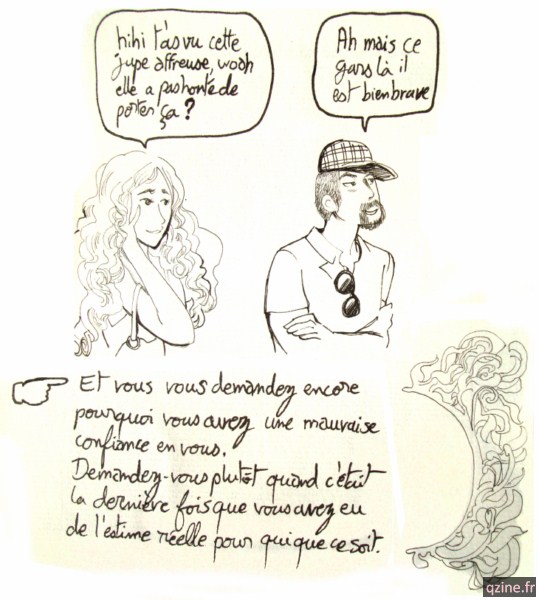 hihi t'as vu cette
jupe affreuse, wooh
elle a pas honte de
porter ça ?
Ah mais ce
gars là il
est bien brave
Et vous vous demandez encore
pourquoi vous avez une mauvaise
confiance en vous.
Demandez-vous plutôt quand c'était
la dernière fois que vous avez eu
de l'estime réelle pour qui que ce soit.
qzine.fr